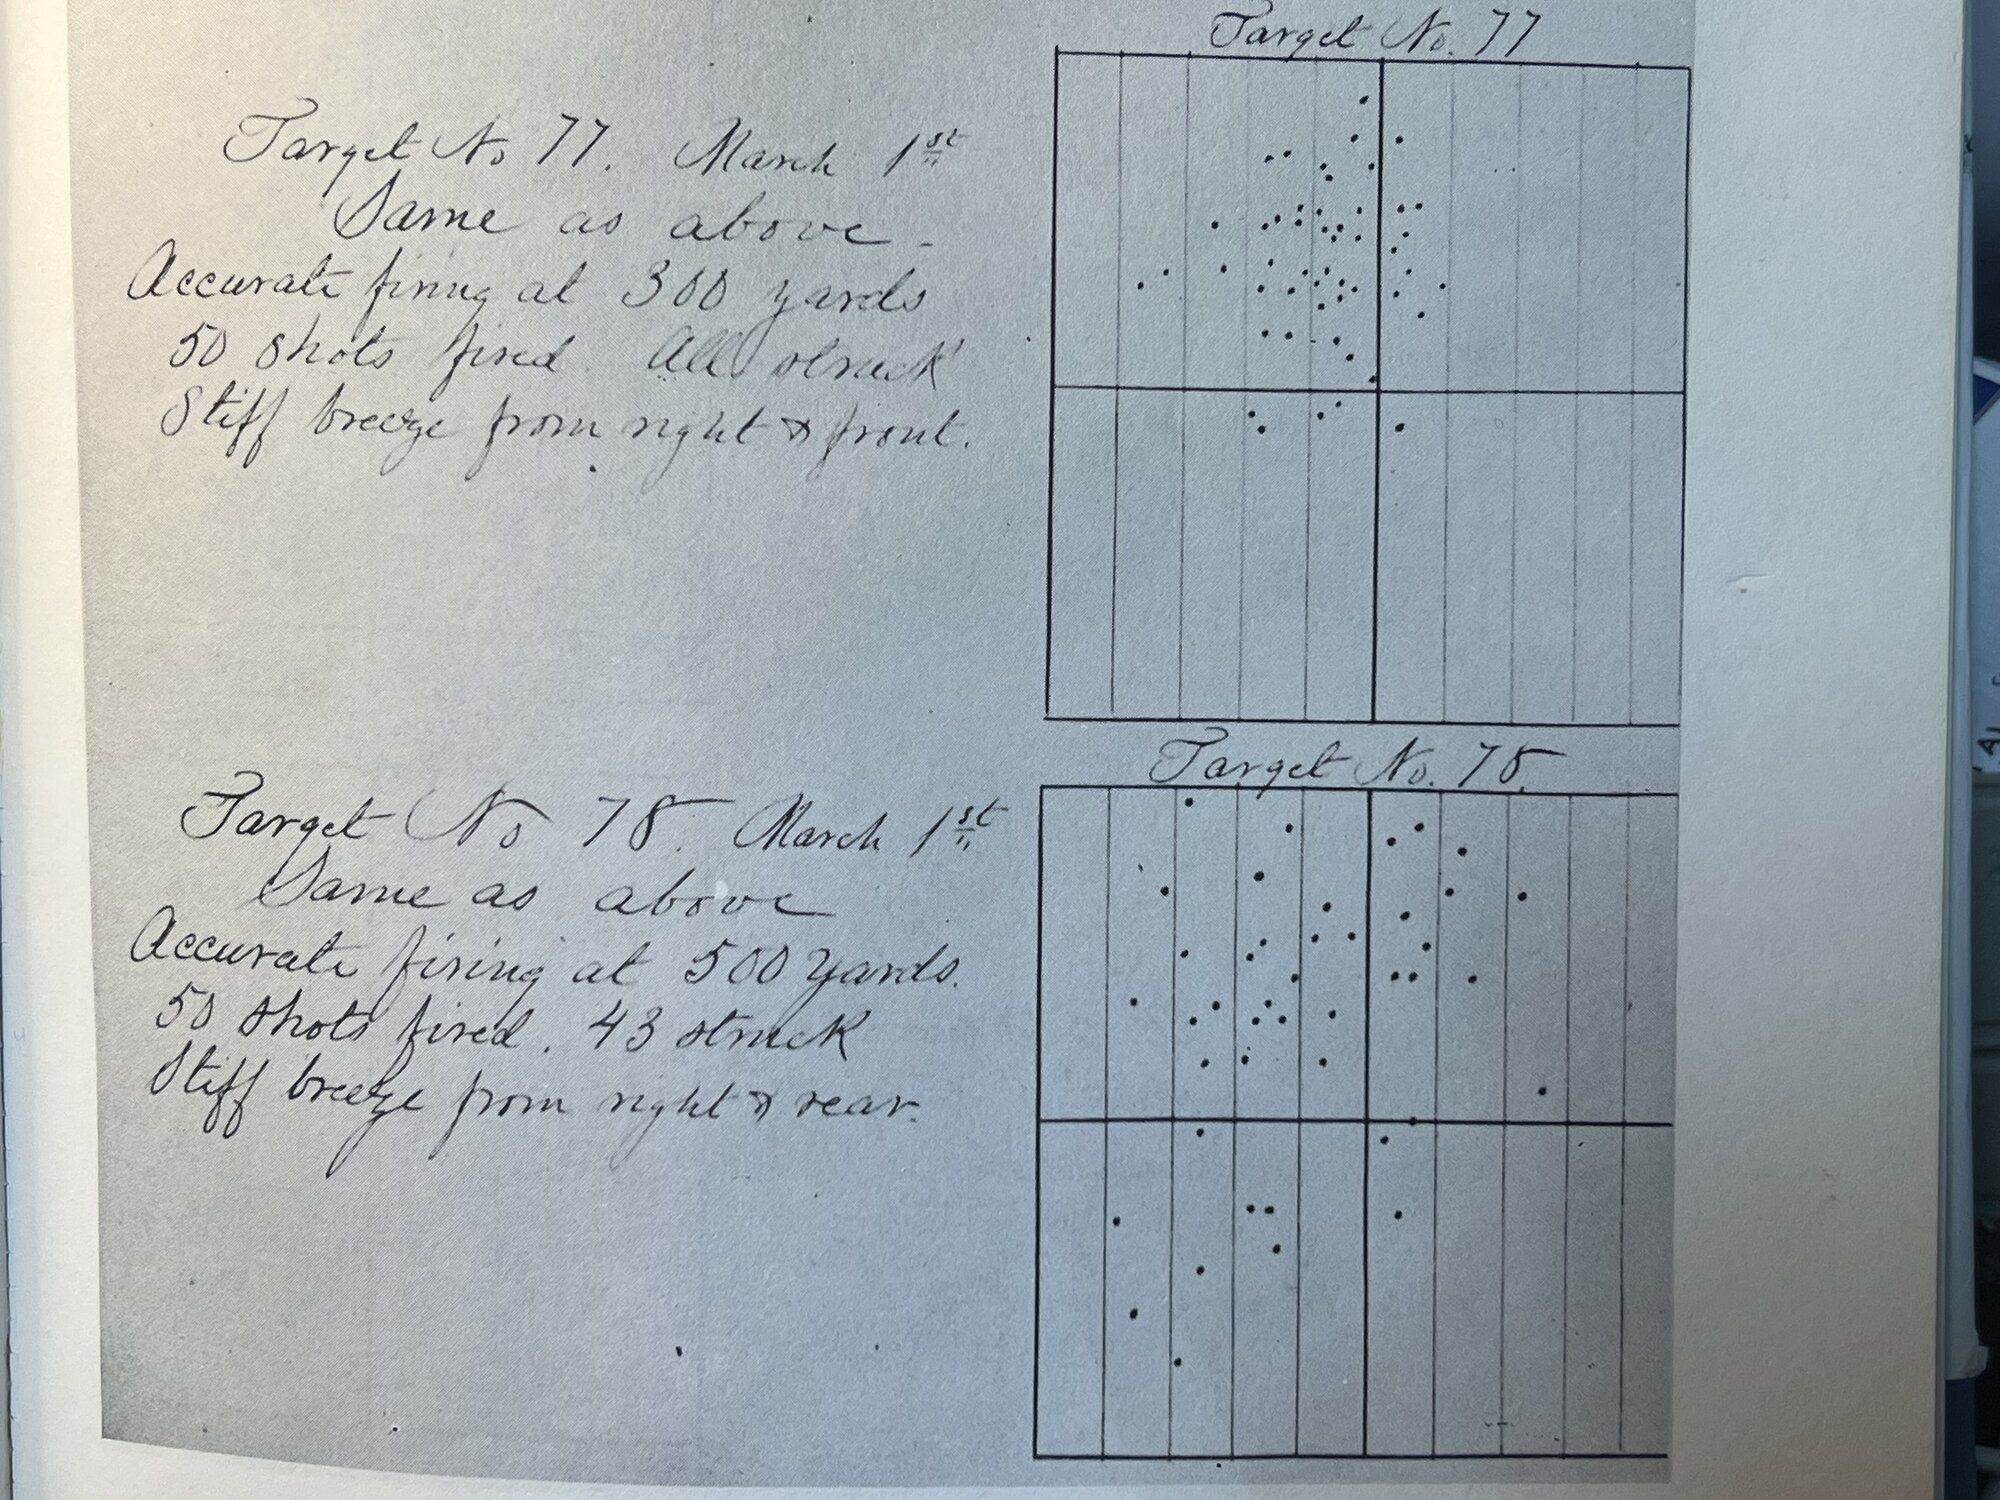 Target No. 77
Target No 77. March 1st
Same as above -
Accurate firing at 300 yards
50 shots fired. All struck
Stiff breeze from right & front.
Target No. 78.
Target No 78. March 1st
Same as above
Accurate firing at 500 yards.
50 shots fired. 43 struck
Stiff breeze from right & rear.